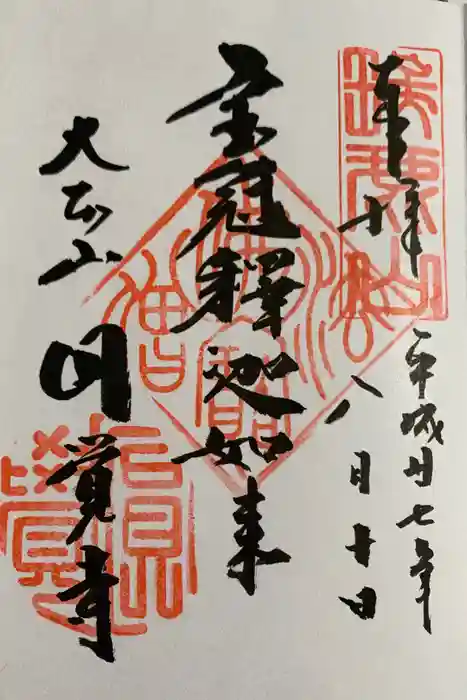 奉拝
平成廿七年
八月十日
宝冠釋迦如来
大本山
円覚寺